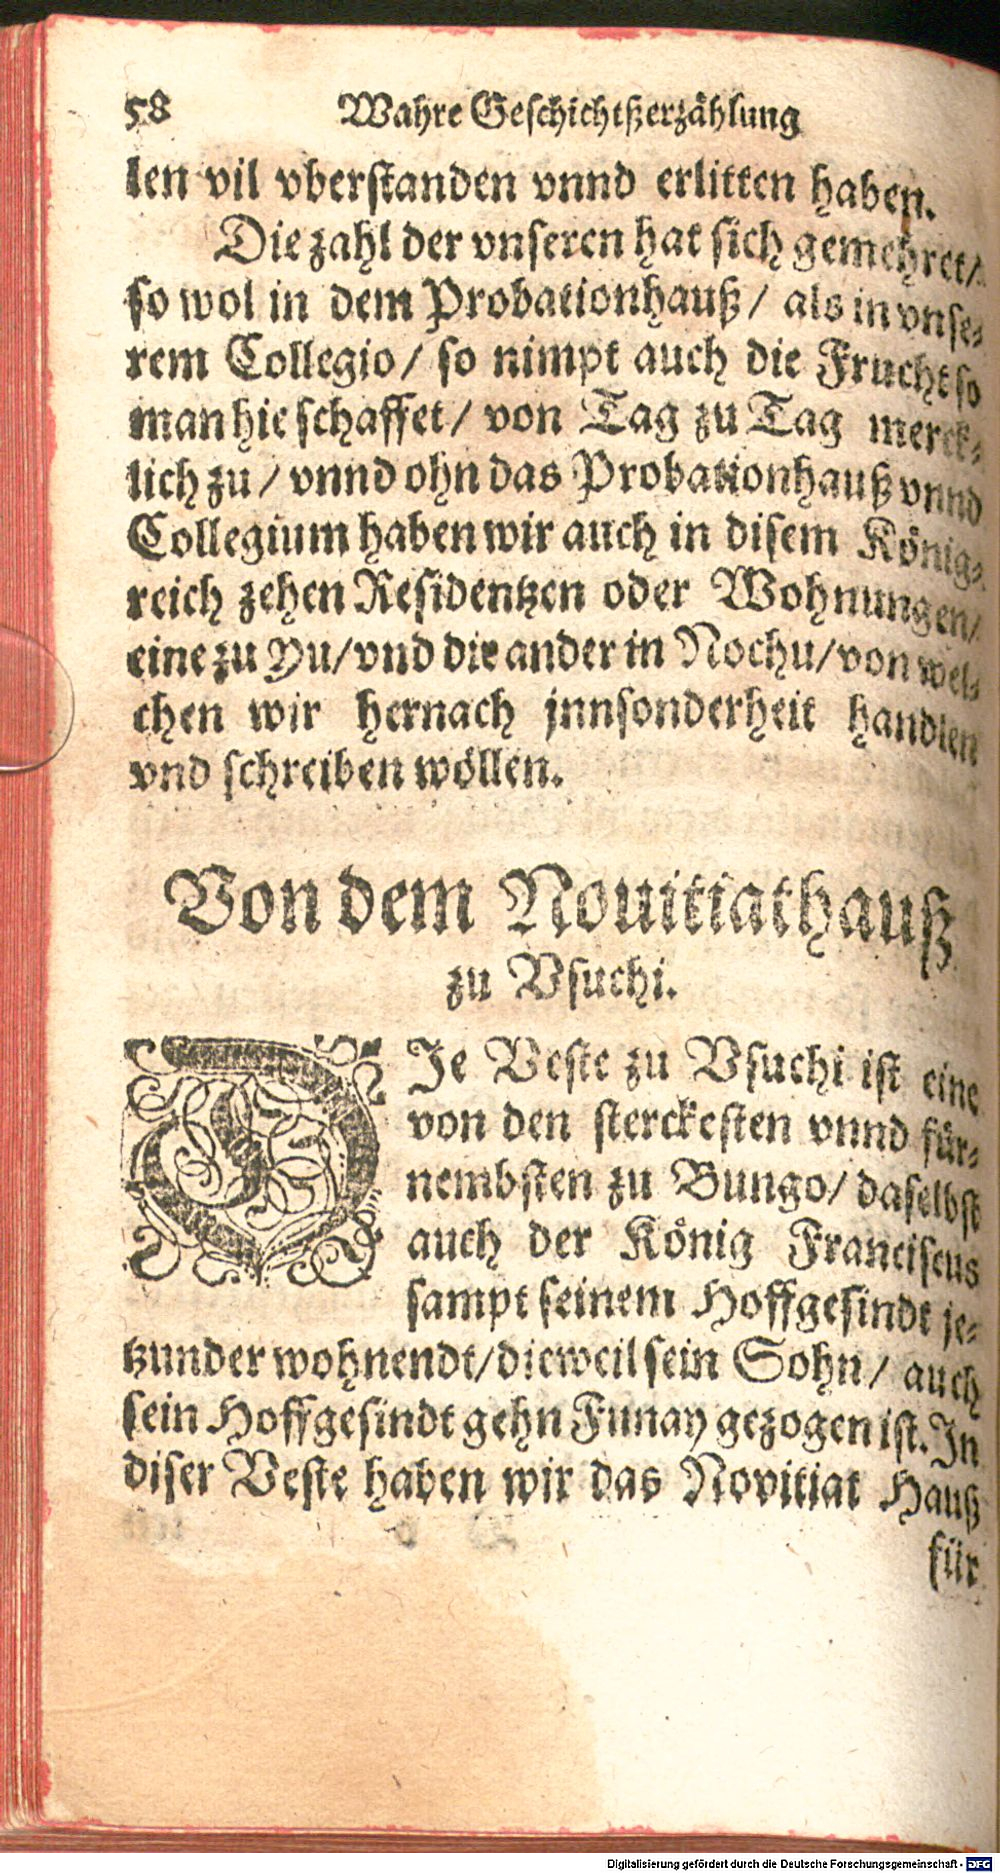 58 Wahre Geschichtßerzählung
len vil vberstanden vnnd erlitten haben.
Die zahl der vnseren hat sich gemehret/
so wol in dem Probationhauß/ als in vnse-
rem Collegio/ so nimpt auch die Frucht so
man hie schaffet/ von Tag zu Tag merck-
lich zu/ vnnd ohn das Probationhauß vnnd
Collegium haben wir auch in disem König-
reich zehen Residentzen oder Wohnungen/
eine zu Yu/ vnd die ander in Nochu/ von wel-
chen wir hernach jnnsonderheit handlen
vnd schreiben wöllen.
Von dem Nouitiathauß
zu Vsuchi.
DIe Veste zu Vsuchi ist eine
von den sterckesten vnnd für-
nembsten zu Bungo/ daselbst
auch der König Franciscus
sampt seinem Hoffgesindt je-
tzunder wohnendt/ dieweil sein Sohn/ auch
sein Hoffgesindt gehn Funay gezogen ist. In
diser Veste haben wir das Novitiat Hauß
für
Digitalisierung gefördert durch die Deutsche Forschungsgemeinschaft - DFG